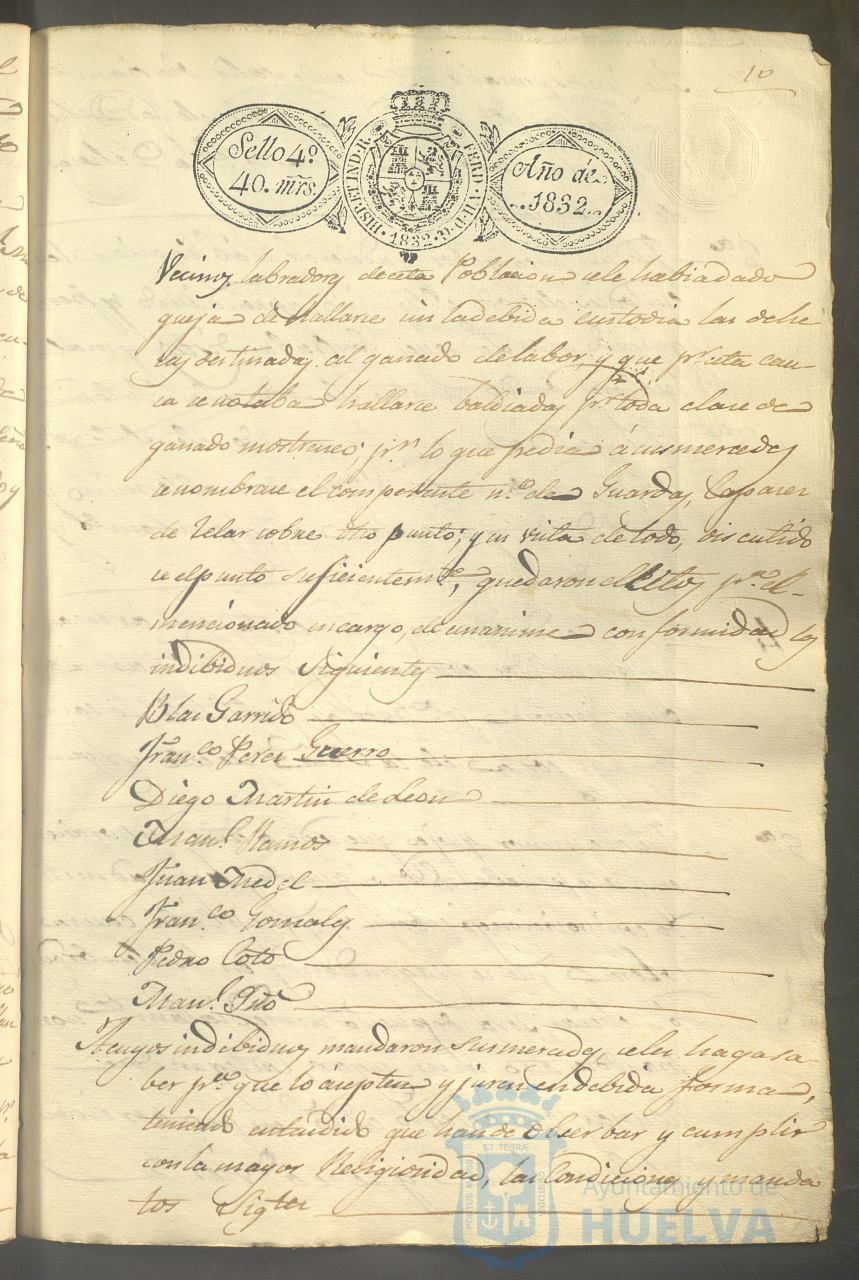 10
Sello 4º
40. mrs.
HISP. ET IND. R.
FERD. VII. D. G.
1832
Año de
1832
Vecinos labradores de esta Poblacion se le habia dado
queja de hallarse sin la debida custodia las dehe
sas destinadas al ganado de labor, y que pr. esta cau-
sa se notaba hallarse baldiadas pr. toda clase de
ganado mostrenco; pr. lo que pedia á sus mercedes
se nombrase el competente n.º de Guardas,
de Zelar sobre otro punto; y en vista de todo, discutido
se el punto suficientemte., quedaron electos pa. el
mencionado encargo, de unanime conformidad los
indibiduos siguientes
Blas Garrido
Fran.co Perez Guerro
Diego Martin de Leon
Man.l Ramos
Juan Medel
Fran.co Gonzales
Pedro Coto
Man.l
A cuyos indibiduos mandaron sus mercedes, se les haga sa-
ber pa. que lo acepten y juren en debida forma,
teniendo entendido que han de obserbar y cumplir
con la mayor Religiosidad, las Condiciones y manda
tos sigtes
PORTUS MARIS ET TERRÆ CUSTODIA
Ayuntamiento de
HUELVA